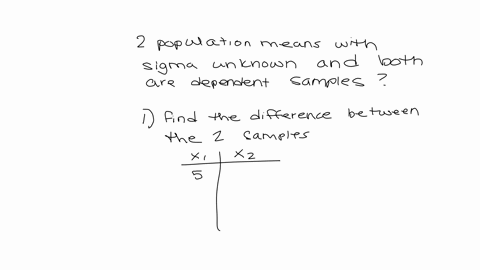 2 population means with
sigma unknown and both
are dependent samples ?
1) find the difference between
the 2 samples
x1 x2
5